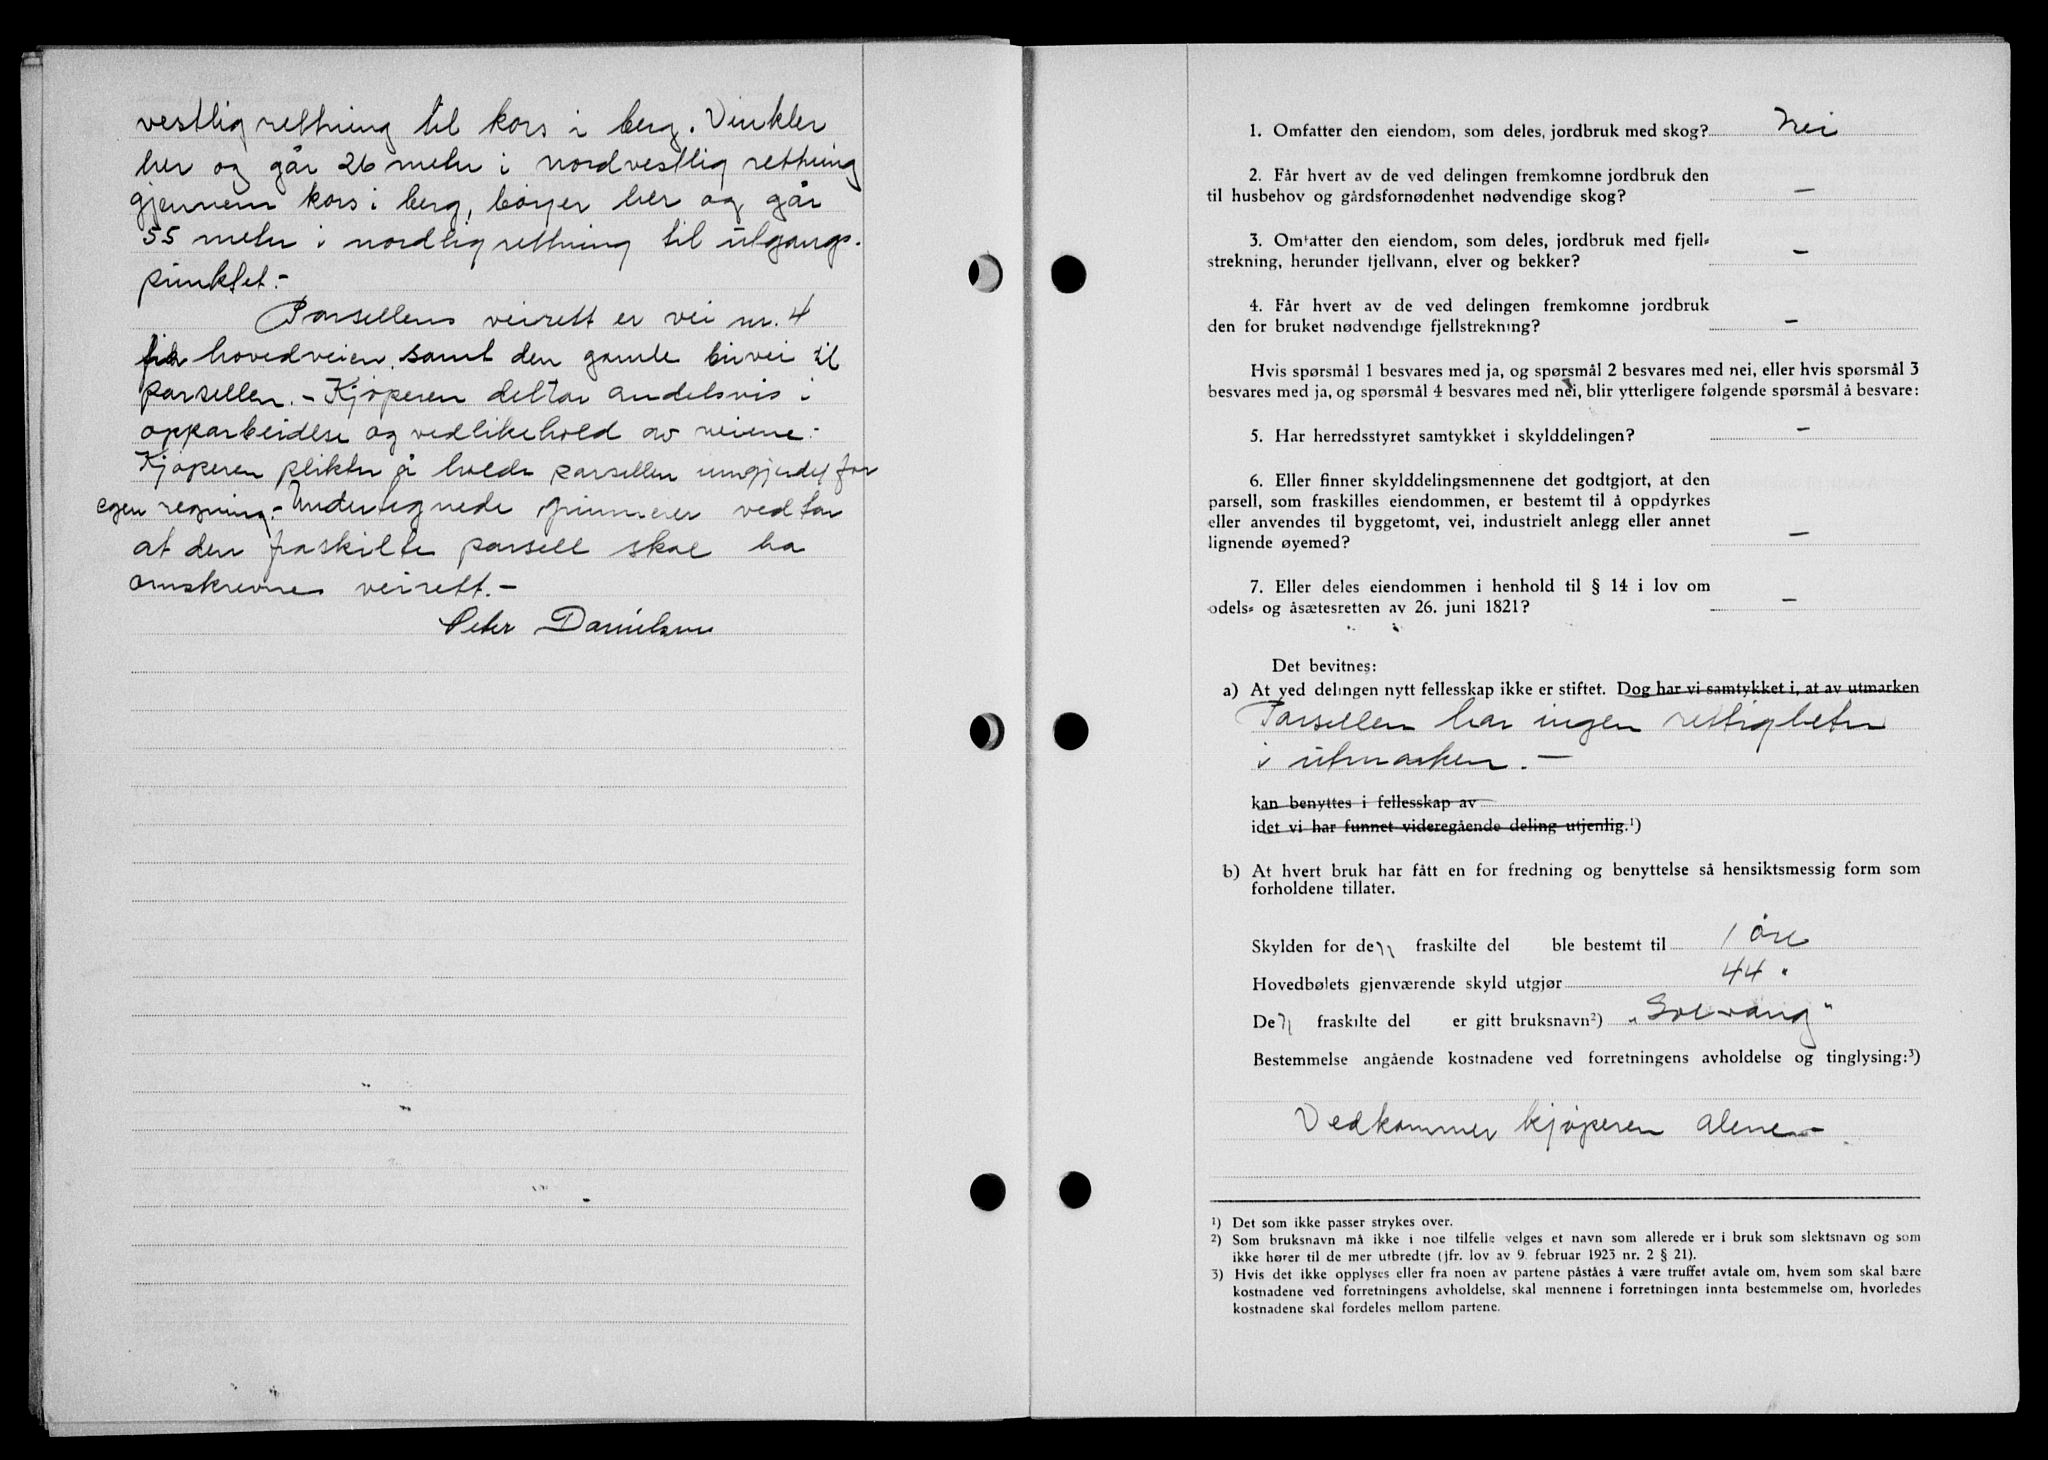 vestlig rettning til kors i berg. Vinkler
her og går 26 meter i nordvestlig rettning
gjennem kors i berg, bøyer her og går
55 meter i nordlig rettning til utgangs-
punktet.-
Parsellens veirett er vei nr. 4
fra hovedveien samt den gamle buvei til
parsellen. - Kjøperen deltar andelsvis i
opparbeidelse og vedlikehold av veiene.-
Kjøperen plikter å holde parsellen inngjerdet for
egen regning.- Undertegnede grunneier vedtar
at den fraskilte parsell skal ha
omskrevne veirett.-
Peter Danielsen
1. Omfatter den eiendom, som deles, jordbruk med skog? Nei
2. Får hvert av de ved delingen fremkomne jordbruk den
til husbehov og gårdsfornødenhet nødvendige skog? —
3. Omfatter den eiendom, som deles, jordbruk med fjell-
strekning, herunder fjellvann, elver og bekker? —
4. Får hvert av de ved delingen fremkomne jordbruk
den for bruket nødvendige fjellstrekning? —
Hvis spørsmål 1 besvares med ja, og spørsmål 2 besvares med nei, eller hvis spørsmål 3
besvares med ja, og spørsmål 4 besvares med nei, blir ytterligere følgende spørsmål å besvare:
5. Har herredsstyret samtykket i skylddelingen? —
6. Eller finner skylddelingsmennene det godtgjort, at den
parsell, som fraskilles eiendommen, er bestemt til å oppdyrkes
eller anvendes til byggetomt, vei, industrielt anlegg eller annet
lignende øyemed? —
7. Eller deles eiendommen i henhold til § 14 i lov om
odels- og åsætesretten av 26. juni 1821? —
Det bevitnes:
a) At ved delingen nytt fellesskap ikke er stiftet. Dog har vi samtykket i, at av utmarken
Parsellen har ingen rettigheter
i utmarken. —
kan benyttes i fellesskap av
idet vi har funnet videregående deling utjenlig.¹)
b) At hvert bruk har fått en for fredning og benyttelse så hensiktsmessig form som
forholdene tillater.
Skylden for den fraskilte del ble bestemt til 1 øre
Hovedbølets gjenværende skyld utgjør 44 "
Den fraskilte del er gitt bruksnavn²) "Solvang"
Bestemmelse angående kostnadene ved forretningens avholdelse og tinglysing:³)
Vedkommer kjøperen alene -
¹) Det som ikke passer strykes over.
²) Som bruksnavn må ikke i noe tilfelle velges et navn som allerede er i bruk som slektsnavn og som
ikke hører til de mer utbredte (jfr. lov av 9. februar 1923 nr. 2 § 21).
³) Hvis det ikke opplyses eller fra noen av partene påståes å være truffet avtale om, hvem som skal bære
kostnadene ved forretningens avholdelse, skal mennene i forretningen innta bestemmelse om, hvorledes
kostnadene skal fordeles mellom partene.